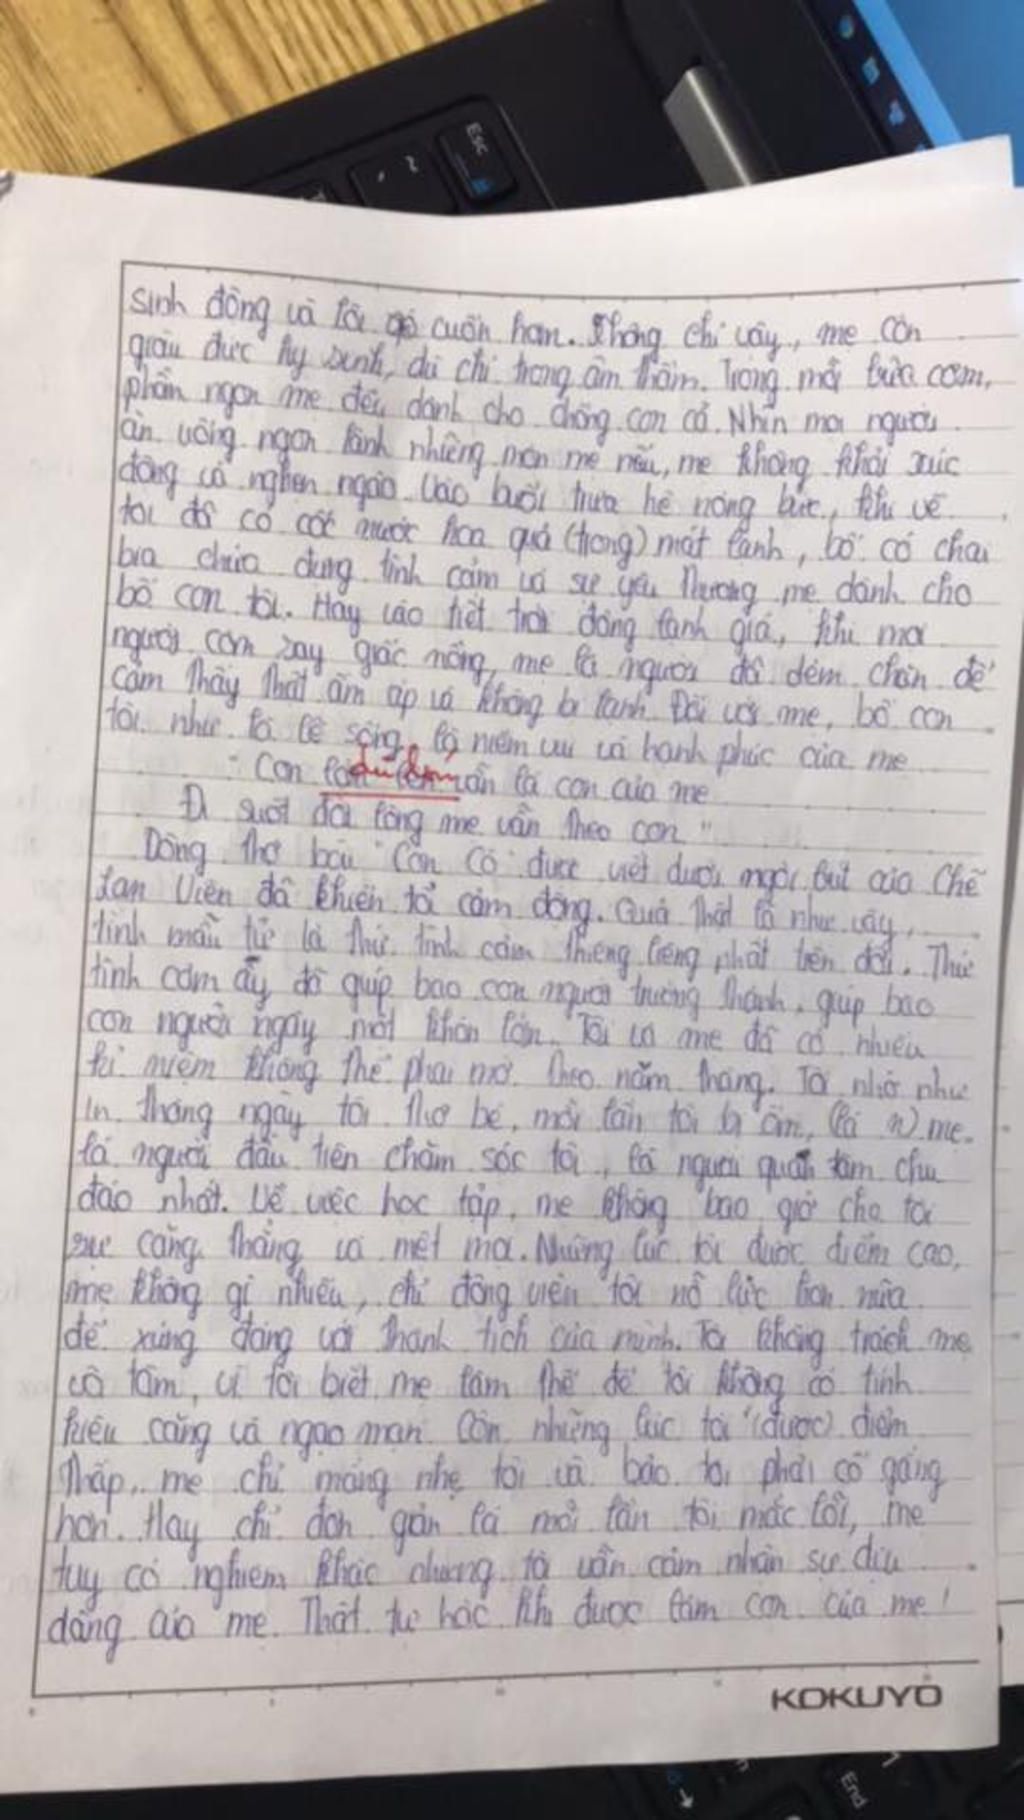 Esc
sinh động và lôi cuốn hơn. Không chỉ vậy, mẹ còn
giàu đức hy sinh, dù chỉ trong âm thầm. Trong mỗi bữa cơm,
phần ngon mẹ đều dành cho chồng con cả. Nhìn mọi người
ăn uống ngon lành những món mẹ nấu, mẹ không khỏi xúc
động và nghẹn ngào. Vào buổi trưa hè nóng bức, khi về
tôi đã có cốc nước hoa quả (trong) mát lành, bố có chai
bia chứa đựng tình cảm và sự yêu thương mẹ dành cho
bố con tôi. Hay vào tiết trời đông lạnh giá, khi mọi
người còn say giấc nồng, mẹ là người đã đem chăn để
cảm thấy thật ấm áp và không bị lạnh. Đối với mẹ, bố con
tôi như là lẽ sống, là niềm vui và hạnh phúc của mẹ
"Con dù lớn vẫn là con của mẹ
Đi suốt đời lòng mẹ vẫn theo con"
Dòng thơ bài "Con Cò" được viết dưới ngòi bút của Chế
Lan Viên đã khiến tôi cảm động. Quả thật là như vậy,
tình mẫu tử là thứ tình cảm thiêng liêng nhất trên đời. Thứ
tình cảm ấy đã giúp bao con người trưởng thành, giúp bao
con người ngày một khôn lớn. Tôi và mẹ đã có nhiều
kỉ niệm không thể phai mờ theo năm tháng. Tôi nhớ như
in tháng ngày tôi thơ bé, mỗi lần tôi bị ốm, (là n) mẹ
là người đầu tiên chăm sóc tôi, là người quan tâm chu
đáo nhất. Về việc học tập, mẹ không bao giờ cho tôi
sự căng thẳng và mệt mỏi. Những lúc tôi được điểm cao,
mẹ không gì nhiều, chỉ động viên tôi nỗ lực hơn nữa
để xứng đáng với thành tích của mình. Tôi không trách mẹ
vô tâm, vì tôi biết mẹ làm thế để tôi không có tính
kiêu căng và ngạo mạn. Còn những lúc tôi (được) điểm
thấp, mẹ chỉ mắng nhẹ tôi và bảo tôi phải cố gắng
hơn. Hay chỉ đơn giản là mỗi lần tôi mắc lỗi, mẹ
tuy có nghiêm khắc nhưng tôi vẫn cảm nhận sự dịu
dàng của mẹ. Thật tự hào khi được làm con của mẹ!
KOKUYO
End